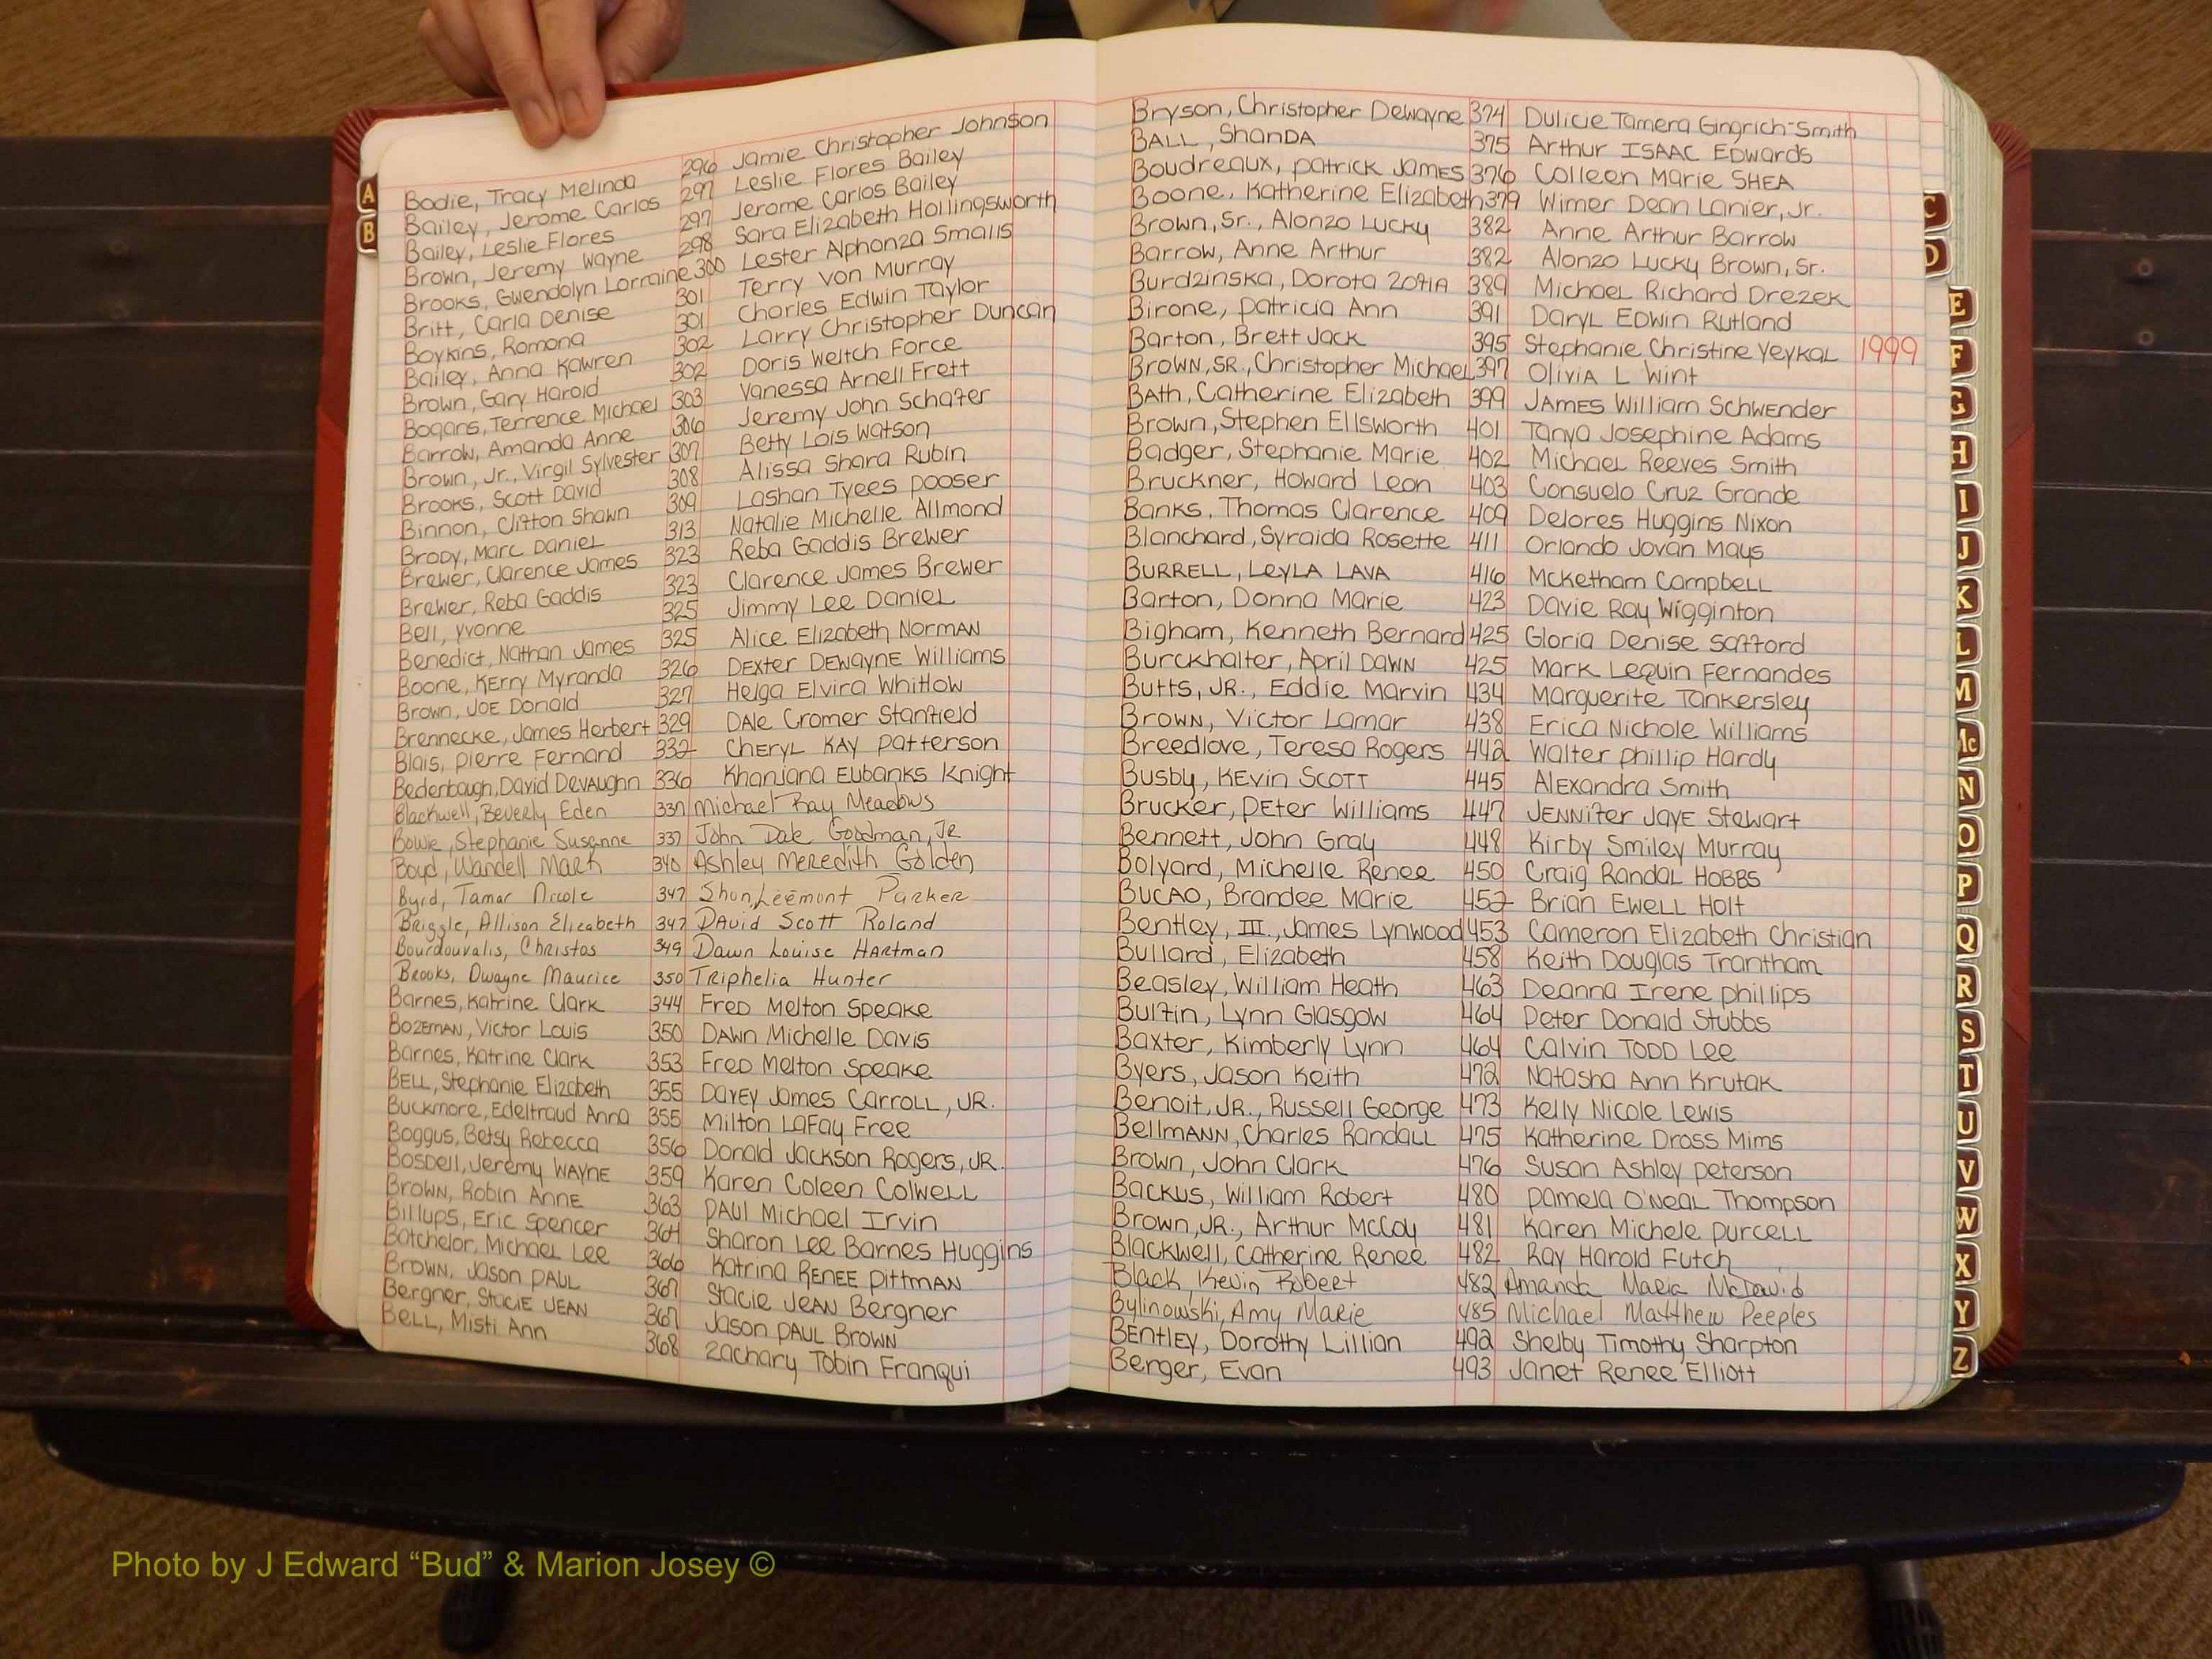 A
B
Bodie, Tracy Melinda 296 Jamie Christopher Johnson
Bailey, Jerome Carlos 297 Leslie Flores Bailey
Bailey, Leslie Flores 297 Jerome Carlos Bailey
Brown, Jeremy Wayne 298 Sara Elizabeth Hollingsworth
Brooks, Gwendolyn Lorraine 300 Lester Alphonza Smalls
Britt, Carla Denise 301 Terry Von Murray
Boykins, Romona 301 Charles Edwin Taylor
Bailey, Anna Kawren 302 Larry Christopher Duncan
Brown, Gary Harold 302 Doris Weltch Force
Bogans, Terrence Michael 303 Vanessa Arnell Frett
Barrow, Amanda Anne 306 Jeremy John Schafer
Brown, Jr., Virgil Sylvester 307 Betty Lois Watson
Brooks, Scott David 308 Alissa Shara Rubin
Binnon, Clifton Shawn 309 Lashan Tyees Pooser
Brody, Marc Daniel 313 Natalie Michelle Allmond
Brewer, Clarence James 323 Reba Gaddis Brewer
Brewer, Reba Gaddis 323 Clarence James Brewer
Bell, Yvonne 325 Jimmy Lee Daniel
Benedict, Nathan James 325 Alice Elizabeth Norman
Boone, Kerry Myranda 326 Dexter Dewayne Williams
Brown, Joe Donald 327 Helga Elvira Whitlow
Brennecke, James Herbert 329 Dale Cromer Stanfield
Blais, Pierre Fernand 332 Cheryl Kay Patterson
Bedenbaugh, David Devaughn 336 Khanjana Eubanks Knight
Blackwell, Beverly Eden 337 Michael Ray Meadows
Bowie, Stephanie Susanne 337 John Dale Goodman, Jr
Boyd, Wandell Mark 340 Ashley Meredith Golden
Byrd, Tamar Nicole 347 Shun Leemont Parker
Briggle, Allison Elizabeth 347 David Scott Roland
Bourdouvalis, Christos 349 Dawn Louise Hartman
Brooks, Dwayne Maurice 350 Triphelia Hunter
Barnes, Katrine Clark 344 Fred Melton Speake
Bozeman, Victor Louis 350 Dawn Michelle Davis
Barnes, Katrine Clark 353 Fred Melton Speake
Bell, Stephanie Elizabeth 355 Davey James Carroll, Jr.
Buckmore, Edeltraud Anna 355 Milton LaFay Free
Boggus, Betsy Rebecca 356 Donald Jackson Rogers, Jr.
Bosdell, Jeremy Wayne 359 Karen Coleen Colwell
Brown, Robin Anne 363 Paul Michael Irvin
Billups, Eric Spencer 364 Sharon Lee Barnes Huggins
Batchelor, Michael Lee 366 Katrina Renee Pittman
Brown, Jason Paul 367 Stacie Jean Bergner
Bergner, Stacie Jean 367 Jason Paul Brown
Bell, Misti Ann 368 Zachary Tobin Franqui
Bryson, Christopher Dewayne 374 Dulicie Tamera Gingrich-Smith
Ball, Shanda 375 Arthur Isaac Edwards
Boudreaux, Patrick James 376 Colleen Marie Shea
Boone, Katherine Elizabeth 379 Wimer Dean Lanier, Jr.
Brown, Sr., Alonzo Lucky 382 Anne Arthur Barrow
Barrow, Anne Arthur 382 Alonzo Lucky Brown, Sr.
Burdzinska, Dorota Zofia 389 Michael Richard Drezek
Birone, Patricia Ann 391 Daryl Edwin Rutland
Barton, Brett Jack 395 Stephanie Christine Yeykal 1999
Brown, Sr., Christopher Michael 397 Olivia L Wint
Bath, Catherine Elizabeth 399 James William Schwender
Brown, Stephen Ellsworth 401 Tanya Josephine Adams
Badger, Stephanie Marie 402 Michael Reeves Smith
Bruckner, Howard Leon 403 Consuelo Cruz Grande
Banks, Thomas Clarence 409 Delores Huggins Nixon
Blanchard, Syraida Rosette 411 Orlando Jovan Mays
Burrell, Leyla Lava 416 McKetham Campbell
Barton, Donna Marie 423 Davie Ray Wigginton
Bigham, Kenneth Bernard 425 Gloria Denise Safford
Burckhalter, April Dawn 425 Mark Lequin Fernandes
Butts, Jr., Eddie Marvin 434 Marguerite Tankersley
Brown, Victor Lamar 438 Erica Nichole Williams
Breedlove, Teresa Rogers 442 Walter Phillip Hardy
Busby, Kevin Scott 445 Alexandra Smith
Brucker, Peter Williams 447 Jennifer Jaye Stewart
Bennett, John Gray 448 Kirby Smiley Murray
Bolyard, Michelle Renee 450 Craig Randal Hobbs
Bucao, Brandee Marie 452 Brian Ewell Holt
Bentley, III., James Lynwood 453 Cameron Elizabeth Christian
Bullard, Elizabeth 458 Keith Douglas Trantham
Beasley, William Heath 463 Deanna Irene Phillips
Bulfin, Lynn Glasgow 464 Peter Donald Stubbs
Baxter, Kimberly Lynn 464 Calvin Todd Lee
Byers, Jason Keith 472 Natasha Ann Krutak
Benoit, Jr., Russell George 473 Kelly Nicole Lewis
Bellmann, Charles Randall 475 Katherine Dross Mims
Brown, John Clark 476 Susan Ashley Peterson
Backus, William Robert 480 Pamela O'Neal Thompson
Brown, Jr., Arthur McCoy 481 Karen Michele Purcell
Blackwell, Catherine Renee 482 Ray Harold Futch
Black, Kevin Robert 482 Amanda Maria McDavid
Bylinowski, Amy Marie 485 Michael Matthew Peeples
Bentley, Dorothy Lillian 492 Shelby Timothy Sharpton
Berger, Evan 493 Janet Renee Elliott
C
D
E
F
G
H
I
J
K
L
M
Mc
N
O
P
Q
R
S
T
U
V
W
X
Y
Z
Photo by J Edward “Bud” & Marion Josey ©